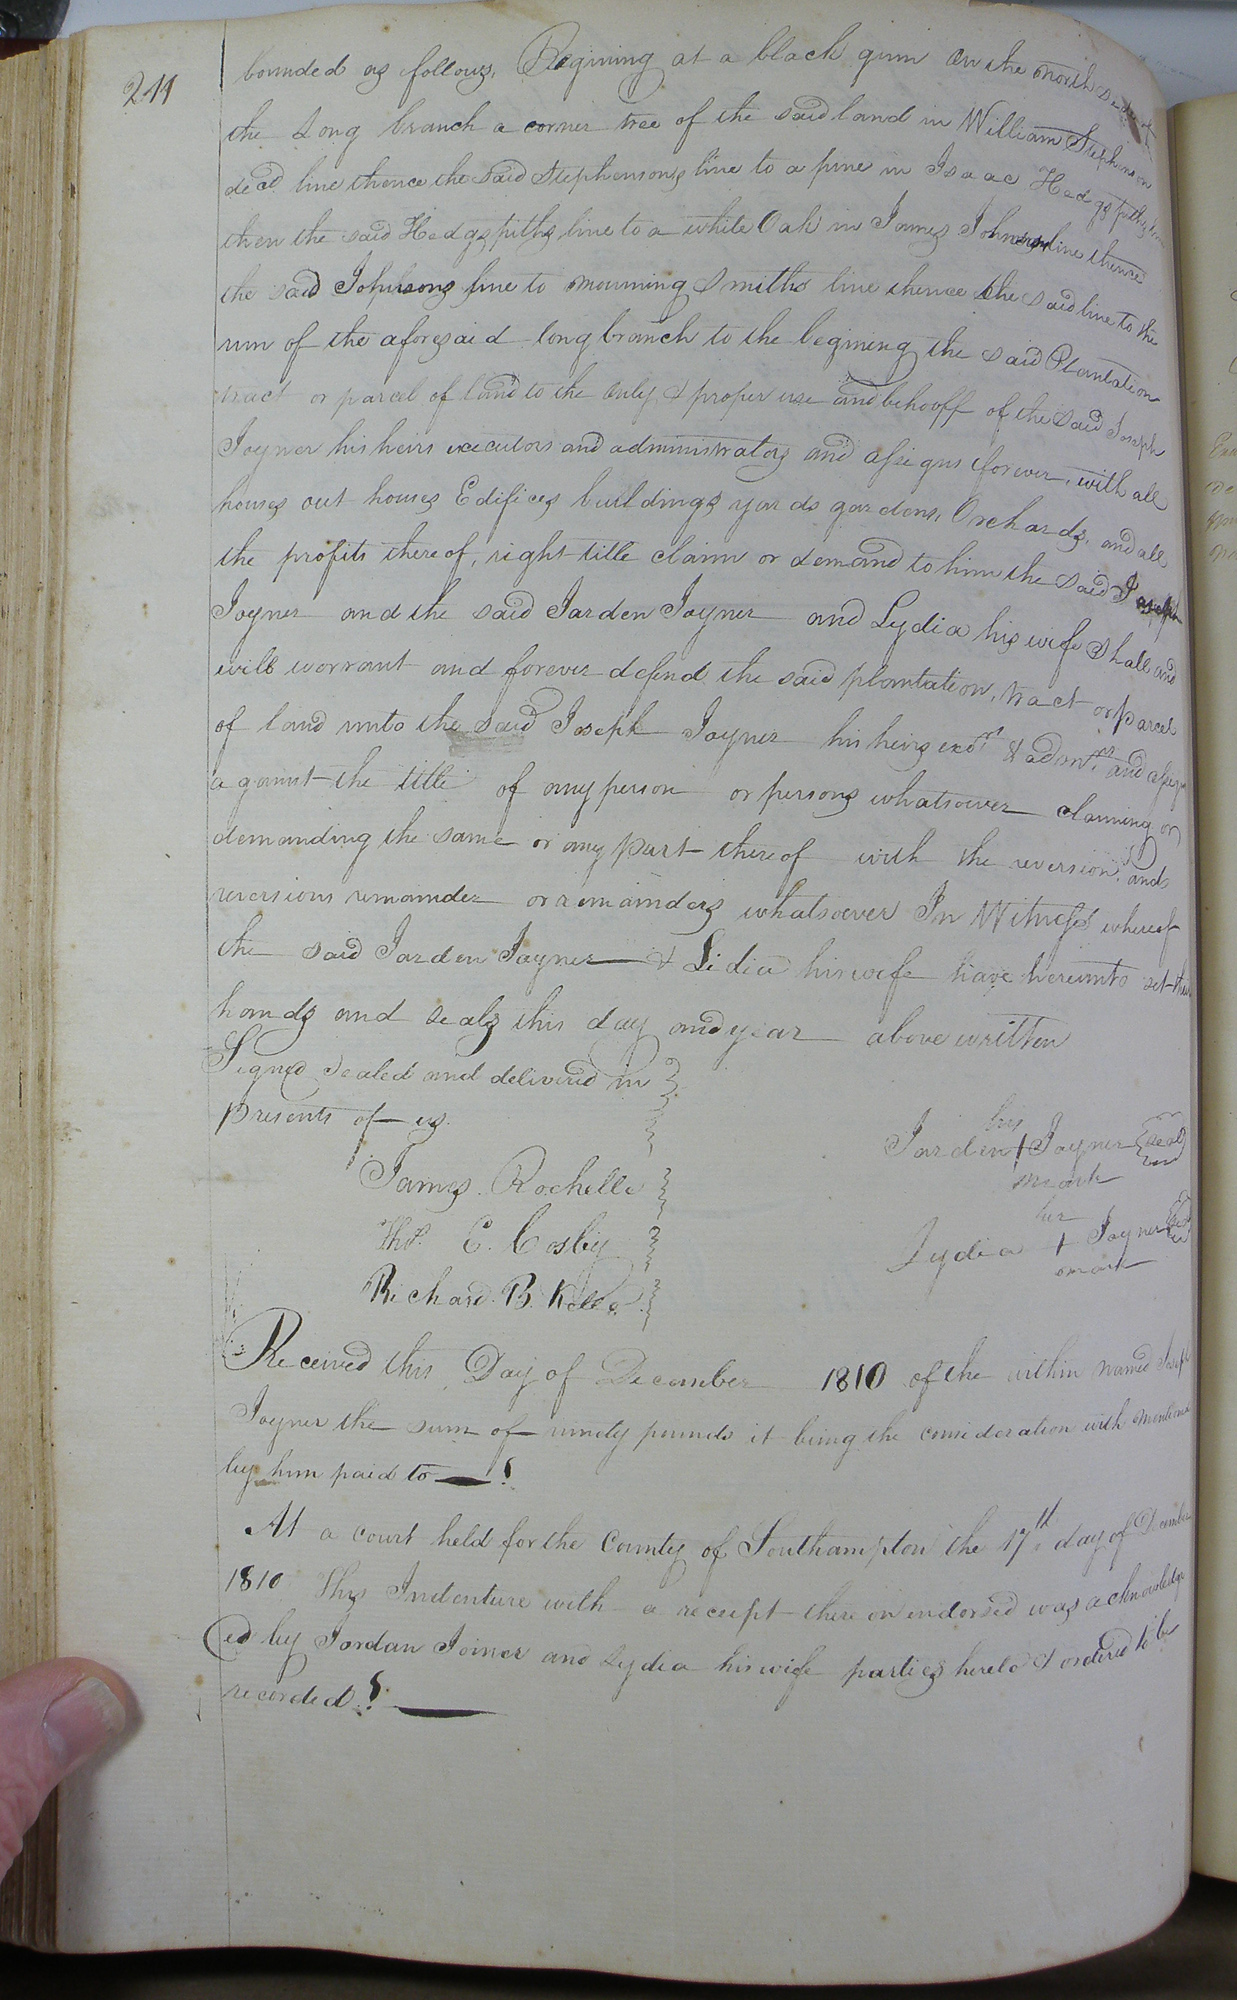 211
bounded as follows, Begining at a black gum on the north side of
the Long branch a corner tree of the said land in William Stephenson
decd line thence the said Stephensons line to a pine in Isaac Hedgspiths line
then the said Hedgspiths line to a white Oak in James Johnsons line thence
the said Johnsons line to mourning Smiths line thence the said line to the
run of the aforesaid long branch to the begining the said Plantation
tract or parcel of land to the only & proper use and behooff of the said Joseph
Joyner his heirs executors and administrators and assigns forever, with all
houses out houses Edifices buildings yards gardens, Orchards, and all
the profits thereof, right title claim or demand to him the said Joseph
Joyner and the said Jarden Joyner and Lydia his wife shall and
will warrant and forever defend the said plantation, tract or parcel
of land unto the said Joseph Joyner his heirs exors & admrs and assigns
against the title of any person or persons whatsoever claiming or
demanding the same or any part thereof with the reversion and
reversions remainder or remainders whatsoever In Witness whereof
the said Jarden Joyner & Lidia his wife have hereunto set their
hands and seals this day and year above written
Signed Sealed and delivered in
presents of us.
his
Jarden + Joyner seal
mark
James Rochelle
her
Thos. E. Cosby
Lydia + Joyner seal
mark
Richard B. Kello
Received this Day of December 1810 of the within named Joseph
Joyner the sum of ninety pounds it being the consideration with mentiond
by him paid to
At a court held for the County of Southampton the 17th day of December
1810 This Indenture with a receipt there on endorsed was acknowledge
ed by Jordan Joiner and Lydia his wife parties hereto & ordered to be
recorded